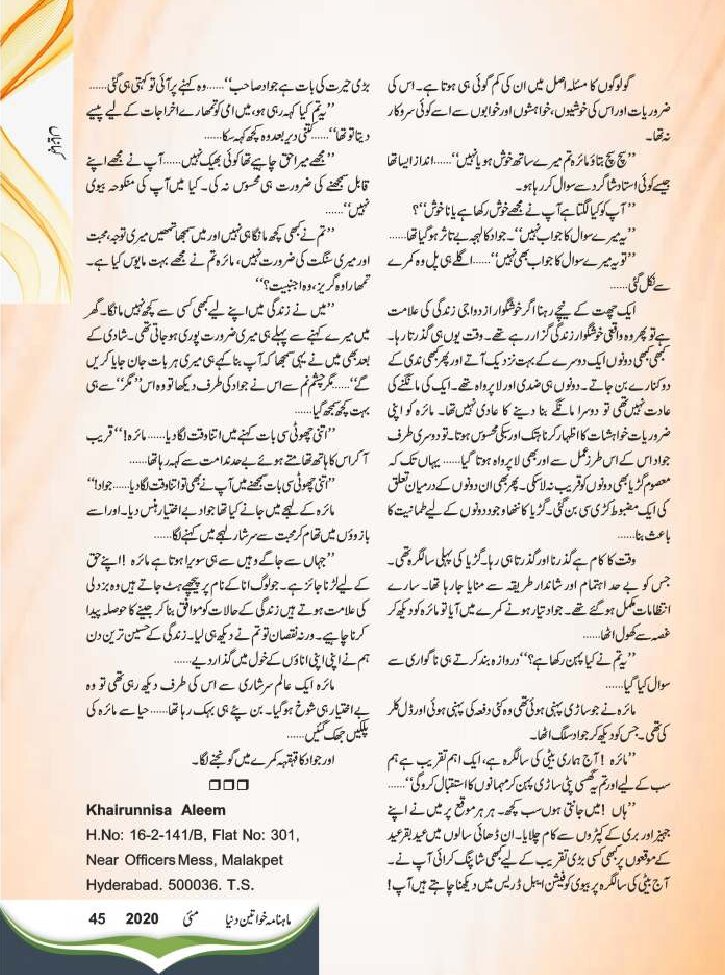 کہانیاں
گولوگوں کا مسئلہ اصل میں ان کی کم گوئی ہی ہوتا ہے۔ اس کی
ضروریات اور اس کی خوشیوں، خواہشوں اور خوابوں سے اسے کوئی سروکار
نہ تھا۔
’’سچ سچ بتاؤ مائرہ تم میرے ساتھ خوش ہو یا نہیں‘‘...... انداز ایسا تھا
جیسے کوئی استاد شاگرد سے سوال کر رہا ہو۔
’’آپ کو کیا لگتا ہے آپ نے مجھے خوش رکھا ہے یا نا خوش‘‘؟
’’یہ میرے سوال کا جواب نہیں‘‘۔ جواد کا لہجہ بے تاثر ہو گیا تھا......
’’تو یہ میرے سوال کا جواب بھی نہیں‘‘...... اگلے ہی پل وہ کمرے
سے نکل گئی......
ایک چھت کے نیچے رہنا اگر خوشگوار ازدواجی زندگی کی علامت
ہے تو پھر وہ واقعی خوشگوار زندگی گزار رہے تھے۔ وقت یوں ہی گذرتا رہا۔
کبھی کبھی دونوں ایک دوسرے کے بہت نزدیک آتے اور پھر کبھی ندی کے
دو کنارے بن جاتے۔ دونوں ہی ضدی اور لا پرواہ تھے۔ ایک کی مانگنے کی
عادت نہیں تھی تو دوسرا مانگے بنا دینے کا عادی نہیں تھا۔ مائرہ کو اپنی
ضروریات خواہشات کا اظہار کرنا ہتک اور سبکی محسوس ہوتا۔ تو دوسری طرف
جواد اس کے اس طرز عمل سے اور بھی لا پرواہ ہوتا گیا...... یہاں تک کہ
معصوم گڑیا بھی دونوں کو قریب نہ لا سکی۔ پھر بھی ان دونوں کے درمیان تعلق
کی ایک مضبوط کڑی سی بن گئی۔ گڑیا کا ننھا وجود دونوں کے لیے طمانیت کا
باعث بنا......
وقت کا کام ہے گذرنا اور گذرتا ہی رہا۔ گڑیا کی پہلی سالگرہ تھی۔
جس کو بے حد اہتمام اور شاندار طریقہ سے منایا جا رہا تھا۔ سارے
انتظامات مکمل ہو گئے تھے۔ جواد تیار ہونے کمرے میں آیا تو مائرہ کو دیکھ کر
غصہ سے کھول اٹھا......
’’یہ تم نے کیا پہن رکھا ہے؟‘‘ دروازہ بند کرتے ہی ناگواری سے
سوال کیا گیا......
مائرہ نے جو ساڑی پہنی ہوئی تھی وہ کئی دفعہ کی پہنی ہوئی اور ڈل کلر
کی تھی۔ جس کو دیکھ کر جواد سلگ اٹھا۔
’’مائرہ! آج ہماری بیٹی کی سالگرہ ہے، ایک اہم تقریب ہے ہم
سب کے لیے اور تم یہ گھسی پٹی ساڑی پہن کر مہمانوں کا استقبال کرو گی‘‘......
’’ہاں! میں جانتی ہوں سب کچھ۔ ہر ہر موقع پر میں نے اپنے
جہیز اور بری کے کپڑوں سے کام چلایا۔ ان ڈھائی سالوں میں عید بقرعید
کے موقعوں پر کبھی کسی بڑی تقریب کے لیے کبھی شاپنگ کرائی آپ نے۔
آج بیٹی کی سالگرہ پر بیوی کو فیشن ایبل ڈریس میں دیکھنا چاہتے ہیں آپ!
بڑی حیرت کی بات ہے جواد صاحب‘‘...... وہ کہنے پر آئی تو کہتی ہی گئی......
’’یہ تم کیا کہہ رہی ہو، میں امی کو تمھارے اخراجات کے لیے پیسے
دیتا تو تھا‘‘...... کتنی دیر بعد وہ کچھ کہہ سکا......
’’مجھے میرا حق چاہیے تھا کوئی بھیک نہیں...... آپ نے مجھے اپنے
قابل سمجھنے کی ضرورت ہی محسوس نہ کی۔ کیا میں آپ کی منکوحہ بیوی
نہیں‘‘......
’’تم نے کبھی کچھ مانگا ہی نہیں اور میں سمجھا تمھیں میری توجہ، محبت
اور میری سنگت کی ضرورت نہیں، مائرہ تم نے مجھے بہت مایوس کیا ہے۔
تمھارا وہ گریز، وہ اجنبیت؟‘‘
’’میں نے زندگی میں اپنے لیے کبھی کسی سے کچھ نہیں مانگا۔ گھر
میں میرے کہنے سے پہلے ہی میری ضرورت پوری ہو جاتی تھی۔ شادی کے
بعد بھی میں نے یہی سمجھا کہ آپ بنا کہے ہی میری ہر بات جان جایا کریں
گے‘‘...... مگر چشم نم سے اس نے جواد کی طرف دیکھا تو وہ اس ’’مگر‘‘ سے ہی
بہت کچھ سمجھ گیا......
’’اتنی چھوٹی سی بات کہنے میں اتنا وقت لگا دیا...... مائرہ!‘‘ قریب
آ کر اس کا ہاتھ تھامتے ہوئے بے حد ندامت سے کہہ رہا تھا......
’’اتنی چھوٹی سی بات سمجھنے میں آپ نے بھی تو اتنا وقت لگا دیا...... جواد!‘‘
مائرہ کے لہجے میں جانے کیا تھا جواد بے اختیار ہنس دیا۔ اور اسے
بازوؤں میں تھام کر محبت سے سرشار لہجے میں کہنے لگا......
’’جہاں سے جاگے وہیں سے ہی سویرا ہوتا ہے مائرہ! اپنے حق
کے لیے لڑنا جائز ہے۔ جو لوگ انا کے نام پر پیچھے ہٹ جاتے ہیں وہ بزدلی
کی علامت ہوتے ہیں زندگی کے حالات کو موافق بنا کر جینے کا حوصلہ پیدا
کرنا چاہیے۔ ورنہ نقصان تو تم نے دیکھ ہی لیا۔ زندگی کے حسین ترین دن
ہم نے اپنی اپنی اناؤں کے خول میں گذار دیے......
مائرہ ایک عالم سرشاری سے اس کی طرف دیکھ رہی تھی تو وہ
بے اختیار ہی شوخ ہو گیا۔ بن پئے ہی بہک رہا تھا...... حیا سے مائرہ کی
پلکیں جھک گئیں......
اور جواد کا قہقہہ کمرے میں گونجنے لگا۔
□□□
Khairunnisa Aleem
H.No: 16-2-141/B, Flat No: 301,
Near Officers Mess, Malakpet
Hyderabad. 500036. T.S.
ماہنامہ خواتین دنیا مئی 2020 45